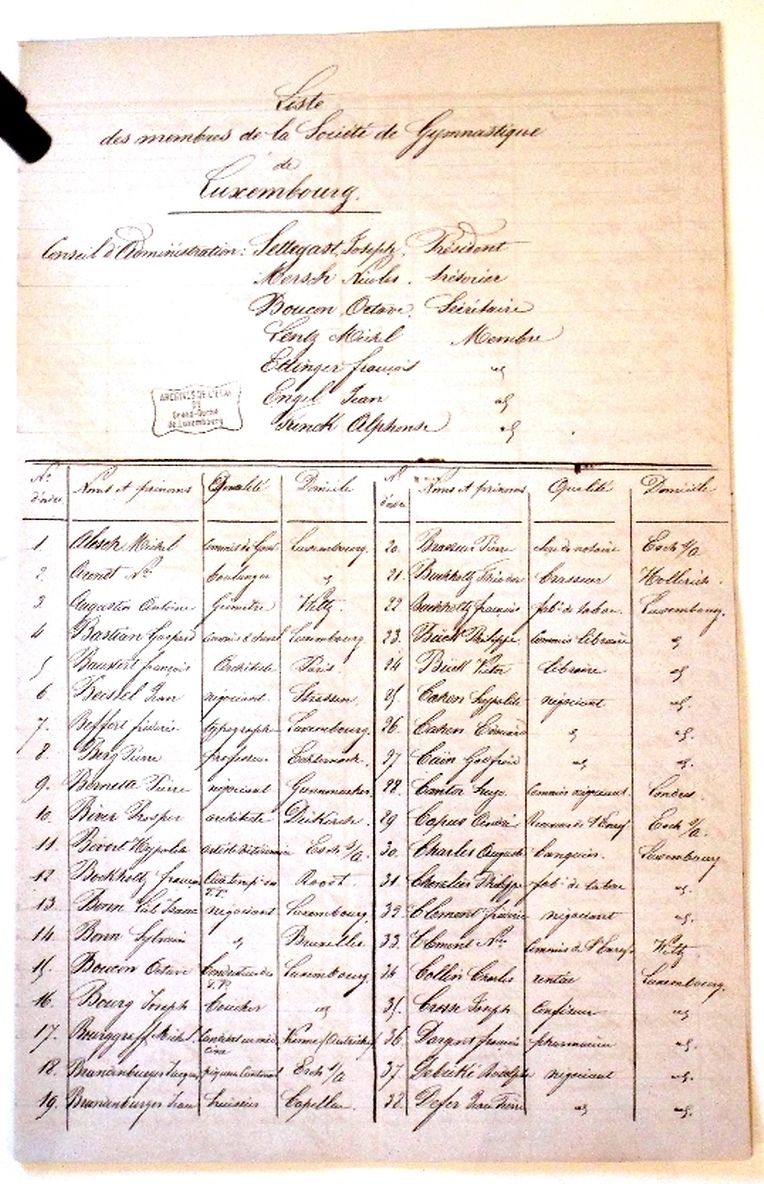 Liste
des membres de la Société de Gymnastique
de
Luxembourg.
Conseil d'Administration: Settegast, Joseph. Président
Mersch Nicolas. trésorier
Boucon Octave. Sécrétaire
Lentz Michel Membre
Ettinger françois id
Engel Jean id
Funck Alphonse id
ARCHIVES DE L'ETAT
DU
Grand-Duché
de Luxembourg
No d'ordre Noms et prénoms Qualité Domicile No d'ordre Noms et prénoms Qualité Domicile
1. Alesch Michel commis de Luxembourg. 20. Brasseur Pierre clerc de notaire Esch s/A
2. Arendt Ns. boulanger " 21. Buchholtz Théodor brasseur Hollerich.
3. Augustin Antoine géomètre Wiltz. 22. Buchholtz françois fabt. de tabac. Luxembourg.
4 Bastian Gaspard Luxembourg 23. Bück Philippe commis libraire id
5 françois Architecte Paris. 24 Bück Victor libraire id.
6 Bessel Jean négociant Strassen. 25. Cahen hypolite négociant id.
7. Beffort fréderic typographe Luxembourg. 26. Cahen Edouard " id.
8. Berg Pierre professeur Echternach. 27. Caïn Godfroid id id.
9. Bernette Pierre négociant Grevenmacher. 28. Cantor Hugo. commis négociant Londres.
10. Biver Prosper architecte Diekirch. 29 Capus André Receveur de l'Enregt Esch s/A.
11. Hypolite artiste vétérinaire Esch s/A. 30. Charles Auguste banquier. Luxembourg
12 Bockholtz françois T.P. Roodt. 31. Chevalier Philippe fabt. de tabac id.
13. Bonn négociant Luxembourg. 32. Clement fréderic négociant id.
14. Bonn Sylvain " Bruxelles 33. Clement Ns. Commis de l'Enregt Wiltz
15. Boucon Octave Conducteur des T.P. Luxembourg. 34 Collin Charles rentier Luxembourg.
16. Bourg Joseph boucher id 35. Crosse Joseph Confiseur id
17. Bourggraff Michel. médecine Vienne/Autriche/ 36. Dargent françois pharmacien id.
18. Brandenburger Jacques piqueur Cantonal Esch s/A 37. Rodolphe négociant id.
19. Brandenburger Jean huissier Capellen. 38. Defer Jean Pierre id id.